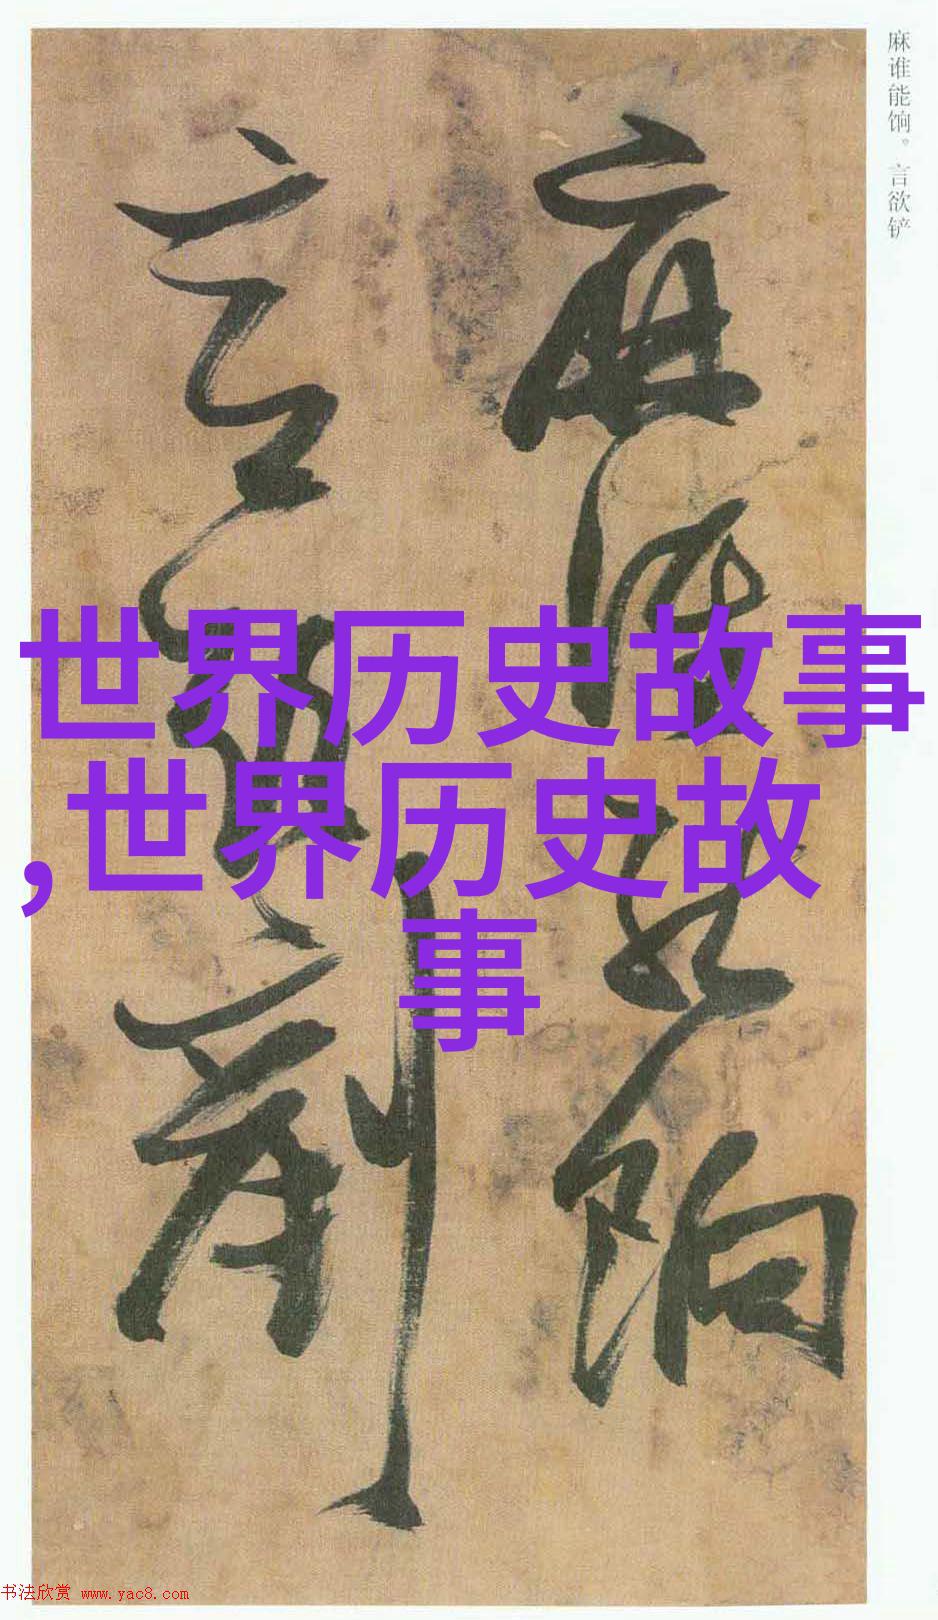 麻谁能饷。言欲铲
麻谁能饷
言欲剷
世界历史故事
,世界历史故
事
书法欣赏 www.yac8.com